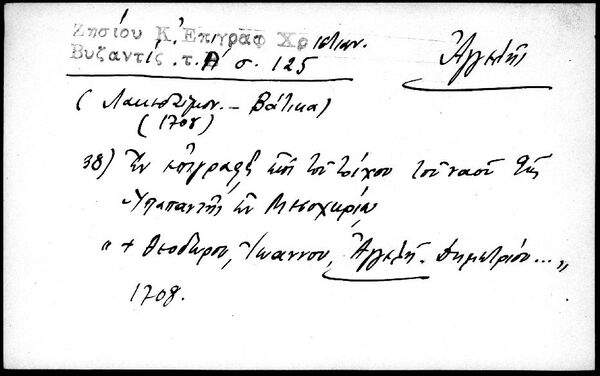 Ζησίου Κ. Ἐπιγραφ Χριστιαν. Ἀγγελῆς
Βυζαντίς. τ. Α' σ. 125
(Λακεδαίμον. - Βάτικα)
(1708)
38) Ἐν ἐπιγραφῇ ἐπὶ τοῦ τοίχου τοῦ ναοῦ τῆς
Ὑπαπαντῆς ἐν Μεσοχωρίῳ
" + Θεοδώρου, Ἰωάννου, Ἀγγελῆ. Δημητρίου... "
1708.